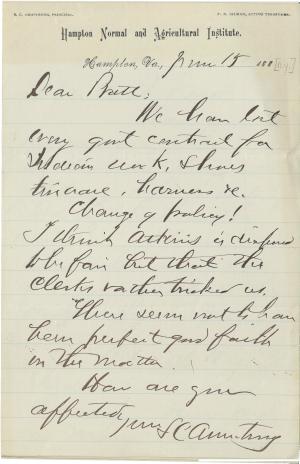 S. C. ARMSTRONG, PRINCIPAL.
F. N. GILMAN, ACTING TREASURER.
Hampton Normal and Agricultural Institute.
Hampton, Va., June 15 188
Dear Pratt;
We have lost
every govt contract for
Indian work, shoes
tinware, harness &c.
Change of policy!
I think Atkins is disposed
to be fair but that the
Clerks rather tricked us.
There seems not to have
been perfect good faith
in the matter.
How are you
affected
Yours S C Armstrong